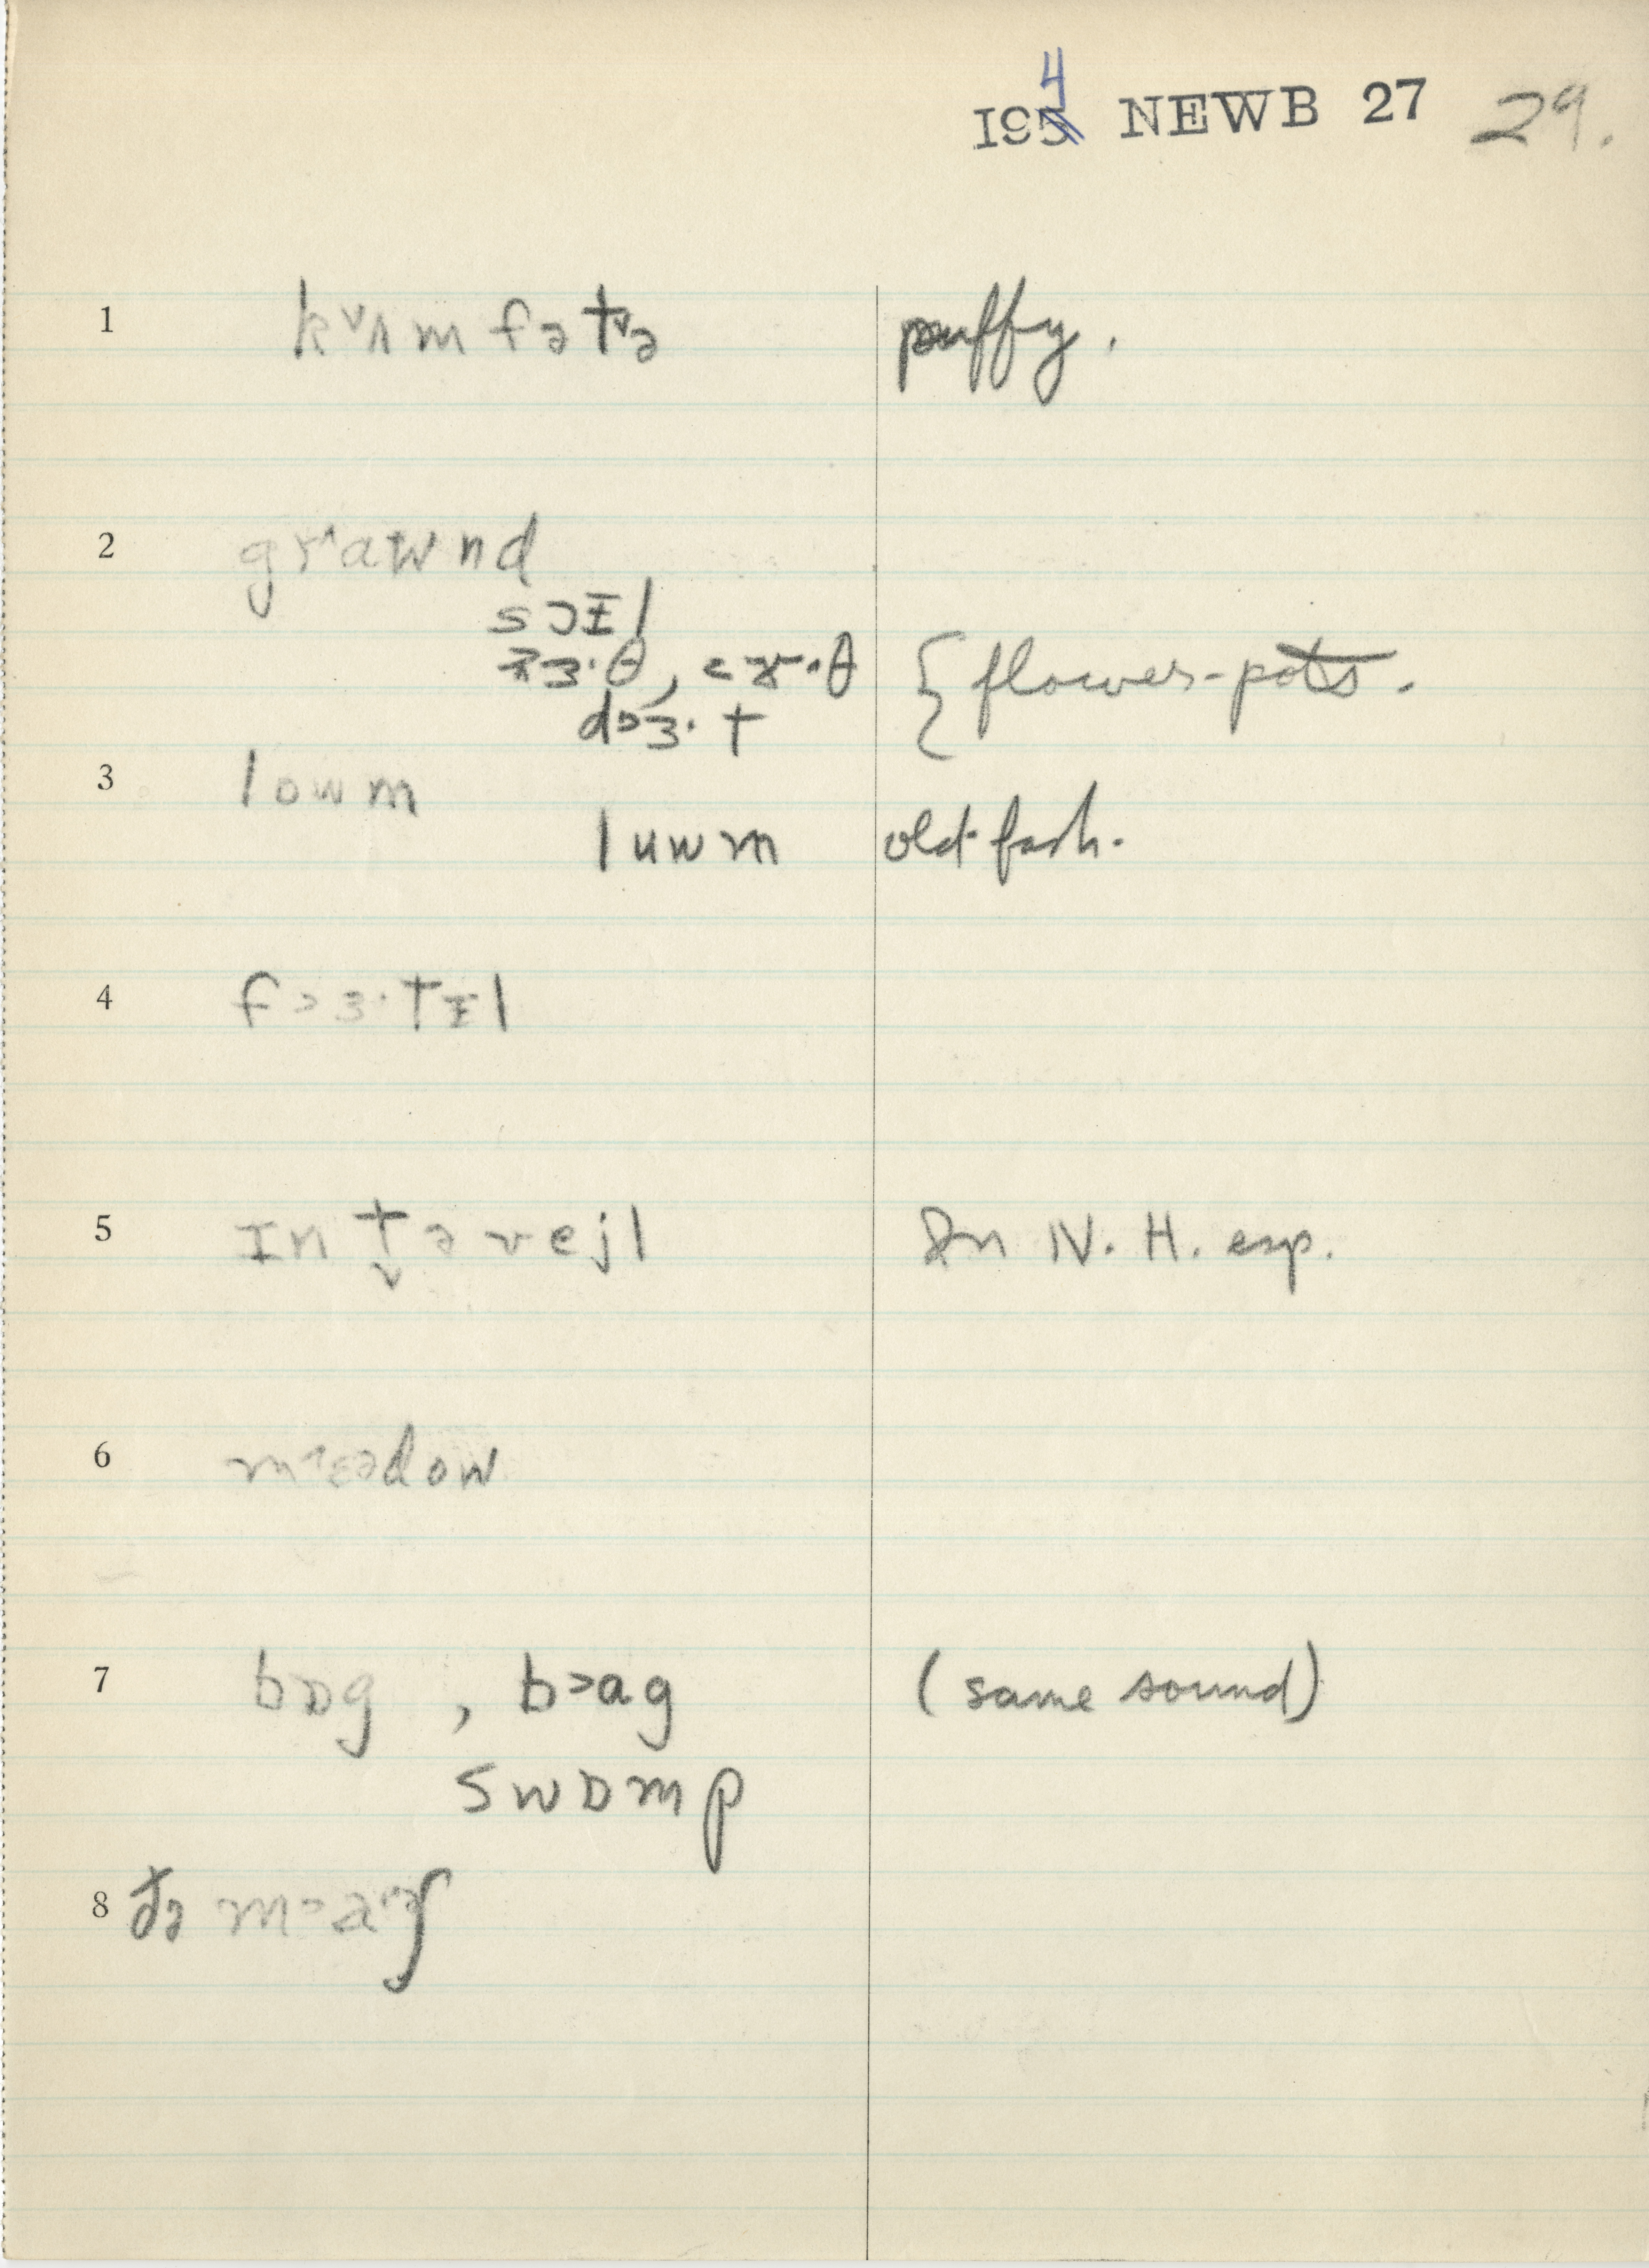 1954 NEWB 27 29.
1 kᵛʌm fətᵛə puffy.
2 grˆawnd
sɔɪl
ɜ·θ, ɚ·θ { flower-pots.
d>ɜ·t
3 lowm
luwm old-fash.
4 f>ɜ·tɪl
5 ɪntəvejl In N. H. esp.
6 m˄ɛədow
7 bɒg, b>ag (same sound)
swɒmp
8 ðə m>aəʃ